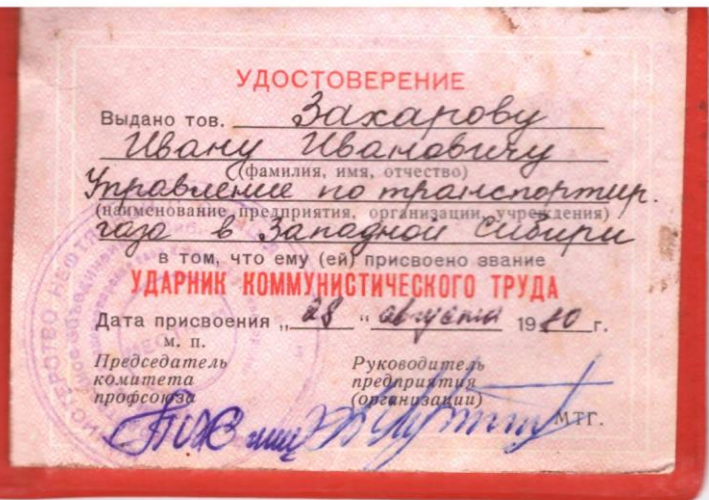 УДОСТОВЕРЕНИЕ
Выдано тов. Захарову
Ивану Ивановичу
(фамилия, имя, отчество)
Управление по транспортир.
(наименование предприятия, организации, учреждения)
газа в Западной Сибири
в том, что ему (ей) присвоено звание
УДАРНИК КОММУНИСТИЧЕСКОГО ТРУДА
Дата присвоения „28 “ августа 1980 г.
м. п.
Председатель комитета профсоюза
Руководитель предприятия (организации)
МТГ.